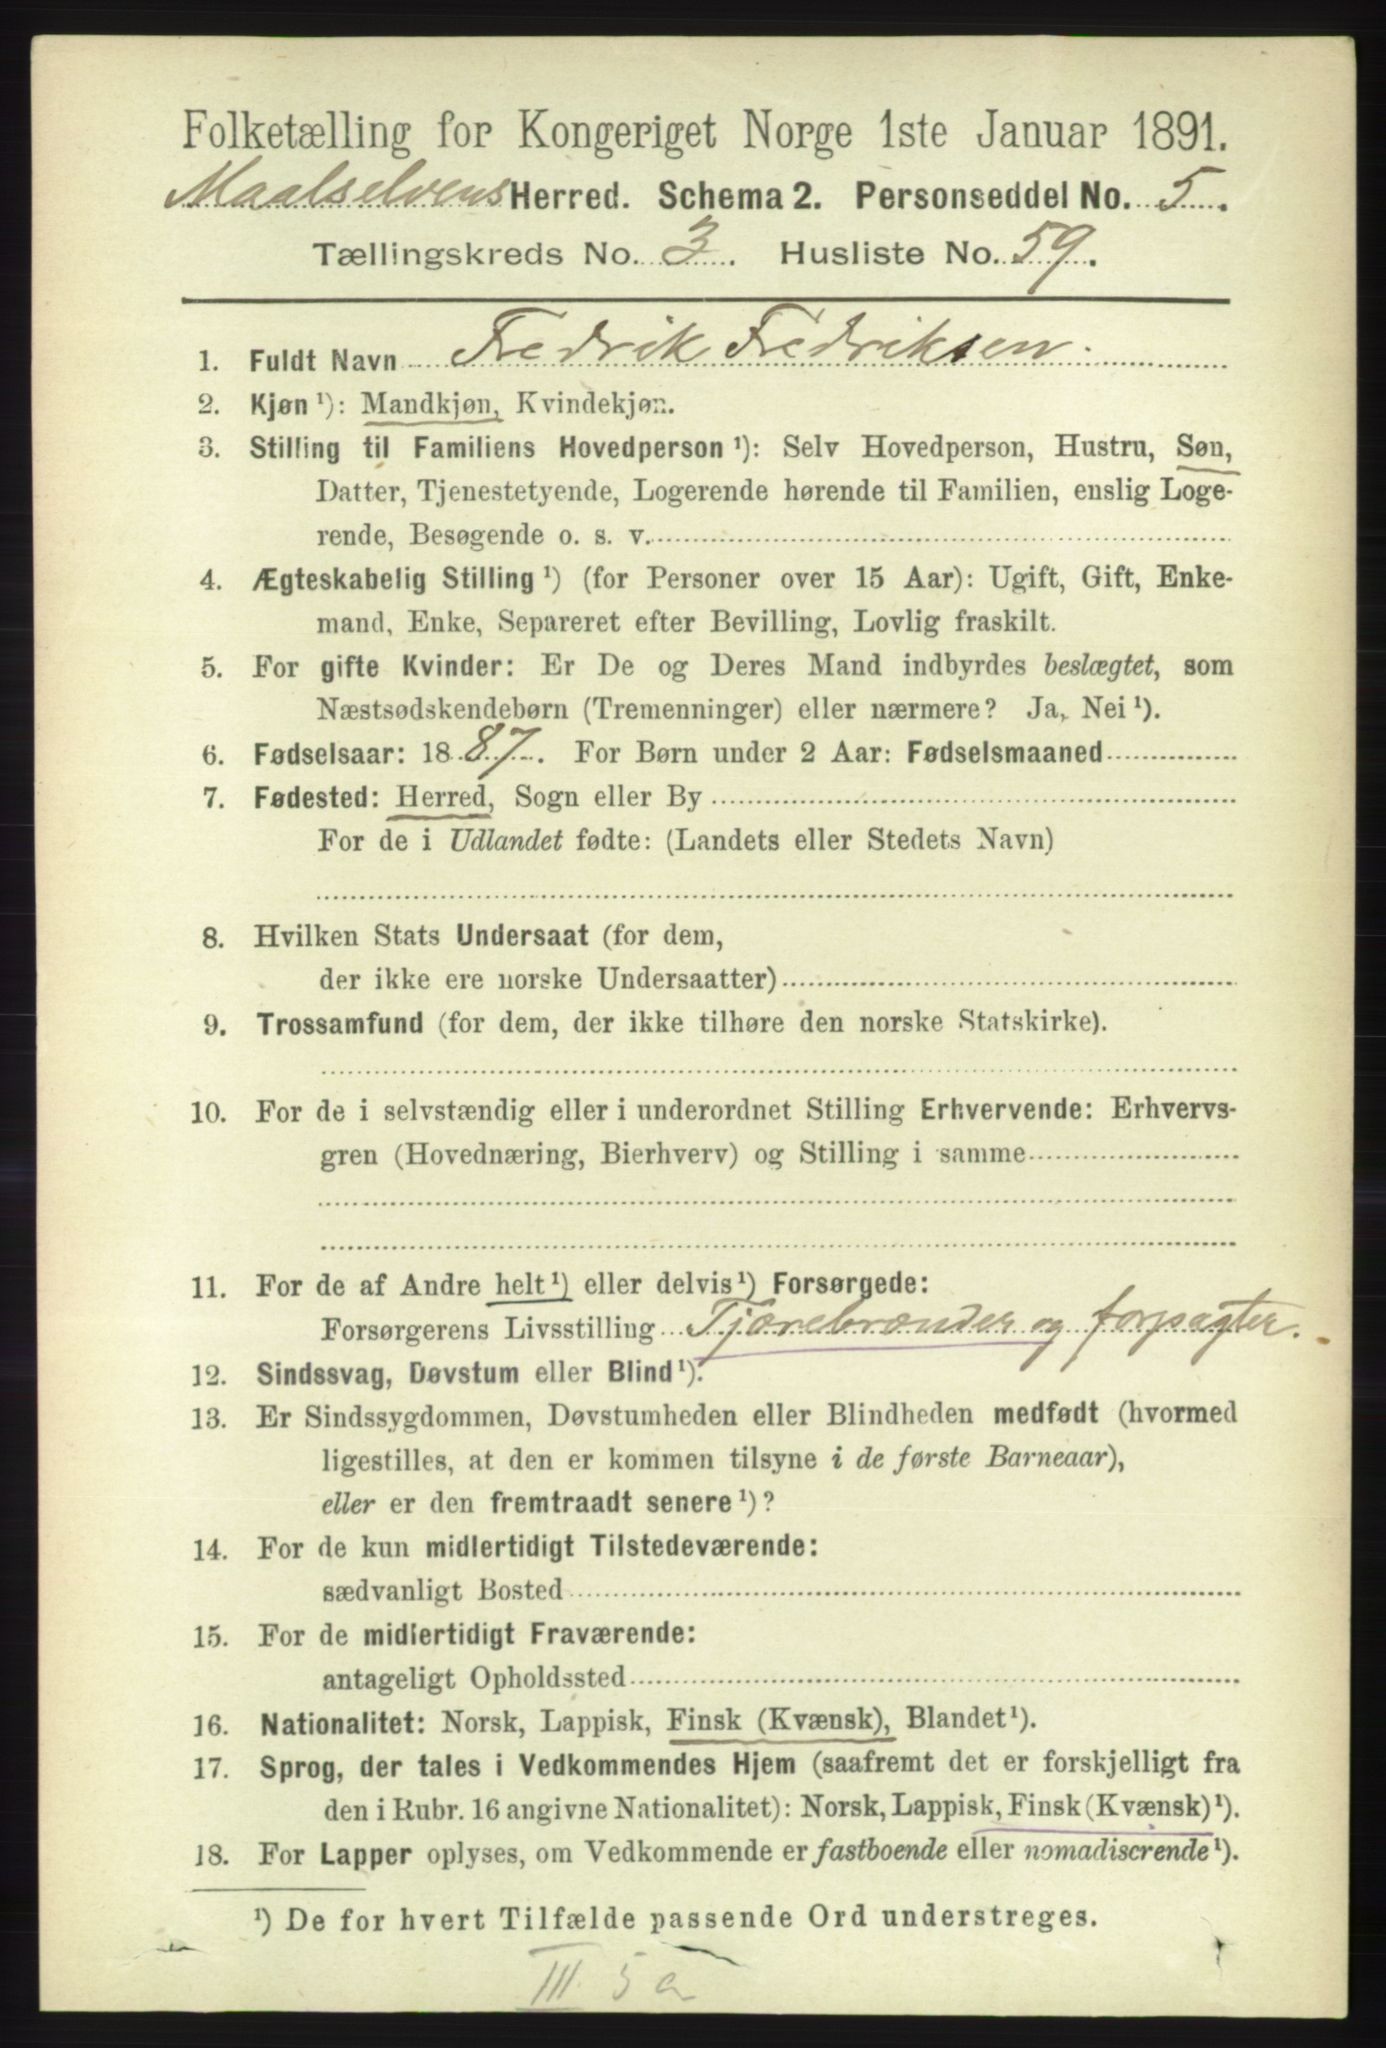 Folketælling for Kongeriget Norge 1ste Januar 1891.
Maalselvens Herred. Schema 2. Personseddel No. 5.
Tællingskreds No. 3. Husliste No. 59.
1. Fuldt Navn Fredrik Fredriksen.
2. Kjøn ¹): Mandkjøn, Kvindekjøn.
3. Stilling til Familiens Hovedperson ¹): Selv Hovedperson, Hustru, Søn,
Datter, Tjenestetyende, Logerende hørende til Familien, enslig Loge-
rende, Besøgende o. s. v.
4. Ægteskabelig Stilling ¹) (for Personer over 15 Aar): Ugift, Gift, Enke-
mand, Enke, Separeret efter Bevilling, Lovlig fraskilt.
5. For gifte Kvinder: Er De og Deres Mand indbyrdes beslægtet, som
Næstsødskendebørn (Tremenninger) eller nærmere? Ja, Nei ¹).
6. Fødselsaar: 1887. For Børn under 2 Aar: Fødselsmaaned
7. Fødested: Herred, Sogn eller By
For de i Udlandet fødte: (Landets eller Stedets Navn)
8. Hvilken Stats Undersaat (for dem,
der ikke ere norske Undersaatter)
9. Trossamfund (for dem, der ikke tilhøre den norske Statskirke).
10. For de i selvstændig eller i underordnet Stilling Erhvervende: Erhvervs-
gren (Hovednæring, Bierhverv) og Stilling i samme
11. For de af Andre helt ¹) eller delvis ¹) Forsørgede:
Forsørgerens Livsstilling Tjærebrænder og forpagter.
12. Sindssvag, Døvstum eller Blind ¹).
13. Er Sindssygdommen, Døvstumheden eller Blindheden medfødt (hvormed
ligestilles, at den er kommen tilsyne i de første Barneaar),
eller er den fremtraadt senere ¹)?
14. For de kun midlertidigt Tilstedeværende:
sædvanligt Bosted
15. For de midlertidigt Fraværende:
antageligt Opholdssted
16. Nationalitet: Norsk, Lappisk, Finsk (Kvænsk), Blandet ¹).
17. Sprog, der tales i Vedkommendes Hjem (saafremt det er forskjelligt fra
den i Rubr. 16 angivne Nationalitet): Norsk, Lappisk, Finsk (Kvænsk) ¹).
18. For Lapper oplyses, om Vedkommende er fastboende eller nomadiserende ¹).
¹) De for hvert Tilfælde passende Ord understreges.
III 5 a